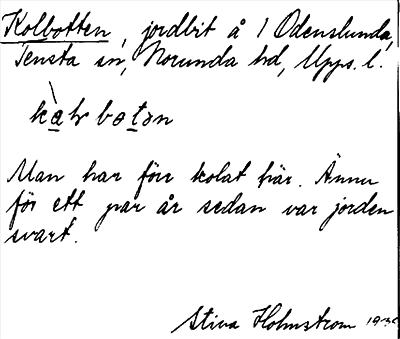 Kolbotten, jordbit å 1 Odenslunda,
Tensta sn, Norunda hd, Upps. l.
Man har förr kolat här. Ännu
för ett par år sedan var jorden
svart.
Stina Holmstrom